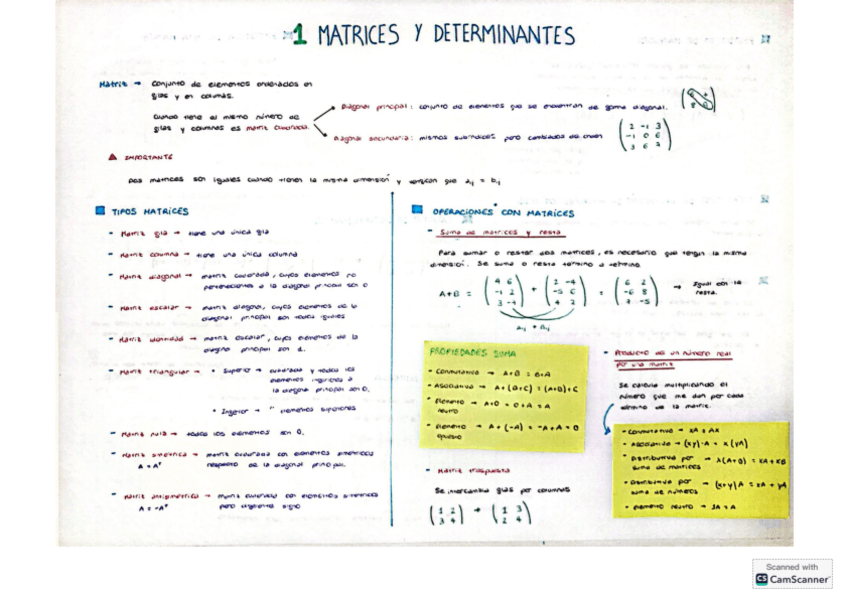 1 MATRICES Y DETERMINANTES
Matriz → Conjunto de elementos ordenados en
filas y en columnas.
Cuando tiene el mismo número de
filas y columnas es matriz cuadrada.
Diagonal principal: conjunto de elementos que se encuentran de forma diagonal.
Diagonal secundaria: mismos subíndices pero cambiados de orden
( 2 -1 3
-1 0 6
3 6 2 )
IMPORTANTE
Dos matrices son iguales cuando tienen la misma dimensión y verifican que aij = bij
TIPOS MATRICES
- Matriz fila → tiene una única fila
- Matriz columna → tiene una única columna
- Matriz diagonal → matriz cuadrada, cuyos elementos no
pertenecientes a la diagonal principal son 0
- Matriz escalar → matriz diagonal, cuyos elementos de la
diagonal principal son todos iguales
- Matriz identidad → matriz escalar, cuyos elementos de la
principal son 1.
- Matriz triangular → • Superior → cuadrada y todos los
elementos inferiores a
la diagonal principal son 0.
• Inferior → " elementos superiores
- Matriz nula → todos los elementos son 0.
- Matriz simétrica → matriz cuadrada con elementos simétricos
A = Aᵗ respecto de la diagonal principal.
- Matriz antisimétrica → matriz cuadrada con elementos simétricos
A = -Aᵗ pero signo
OPERACIONES CON MATRICES
- Suma de matrices y resta
Para sumar o restar dos matrices, es necesario que tengan la misma
dimensión. Se suma o resta término a término.
A+B = ( 4 6
-1 2
3 -4 ) + ( 2 -4
-5 6
4 2 ) = ( 6 2
-6 8
7 -5 ) → Igual con la
resta.
aij + bij
PROPIEDADES SUMA
- Conmutativa → A+B = B+A
- Asociativa → A+(B+C) = (A+B)+C
- Elemento → A+0 = 0+A = A
neutro
- Elemento → A+(-A) = -A+A = 0
opuesto
- Matriz traspuesta
Se intercambia filas por columnas
( 1 2
3 4 ) → ( 1 3
2 4 )
- Producto de un número real
por una matriz
Se calcula multiplicando el
número que me dan por cada
de la matriz.
- Conmutativa →
- Asociativa → (xy)·A = x(yA)
- Distributiva por → x(A+B) = xA+xB
suma de matrices
- Distributiva por → (x+y)A = xA + yA
suma de números
- Elemento neutro → 1A = A
Scanned with
CS CamScanner